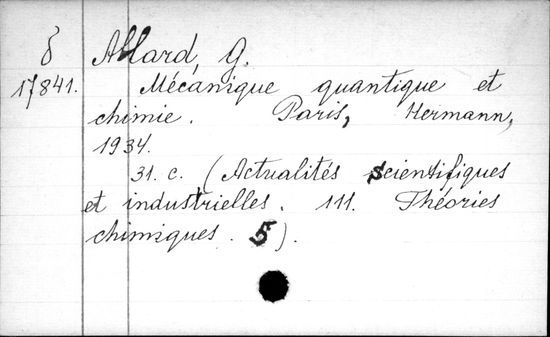 δ Allard, G.
17841. Mécanique quantique et
chimie. Paris, Hermann,
1934.
31. c. (Actualités scientifiques
et industrielles. 111. Théories
chimiques. 5).